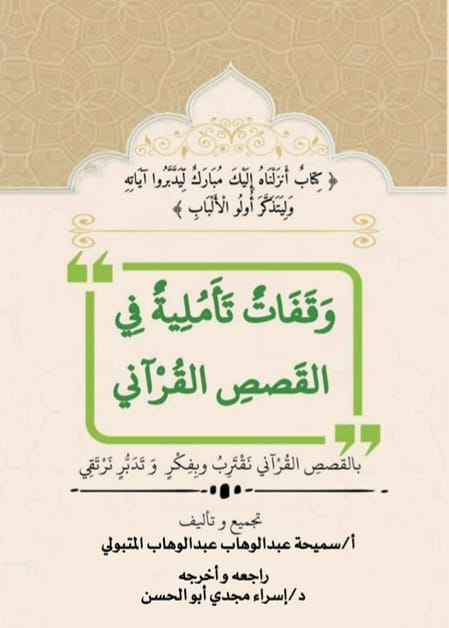 ﴿ كِتَابٌ أَنزَلْنَاهُ إِلَيْكَ مُبَارَكٌ لِّيَدَّبَّرُوا آيَاتِهِ
وَلِيَتَذَكَّرَ أُولُو الْأَلْبَابِ ﴾
وَقَفَاتٌ تَأَمُلِيةٌ فِي
القَصصِ القُرْآني
بالقصصِ القُرْآني نَقْتَرِبُ وبِفِكْرٍ وَ تَدَبُّرٍ نَرْتَقِي
تجميع و تأليف
أ/سميحة عبدالوهاب عبدالوهاب المتبولي
راجعه و أخرجه
د/إسراء مجدي أبو الحسن